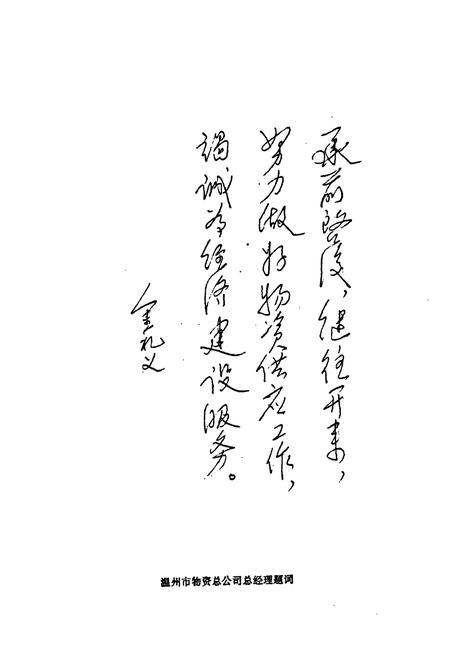 承前启後，继往开来，
努力做好物资供应工作，
竭诚为经济建设服务。
金礼义
温州市物资总公司总经理题词